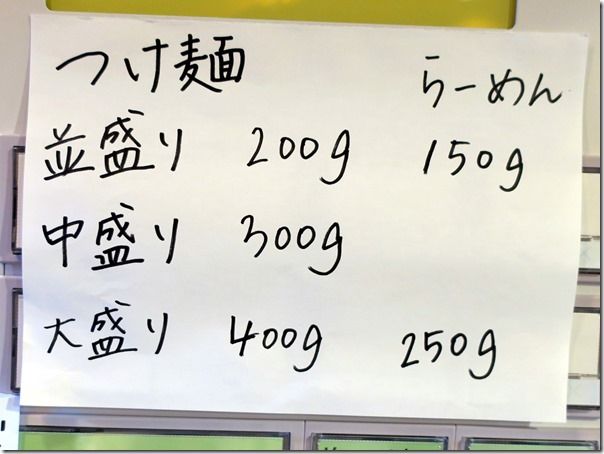 つけ麺 らーめん
並盛り 200g 150g
中盛り 300g
大盛り 400g 250g